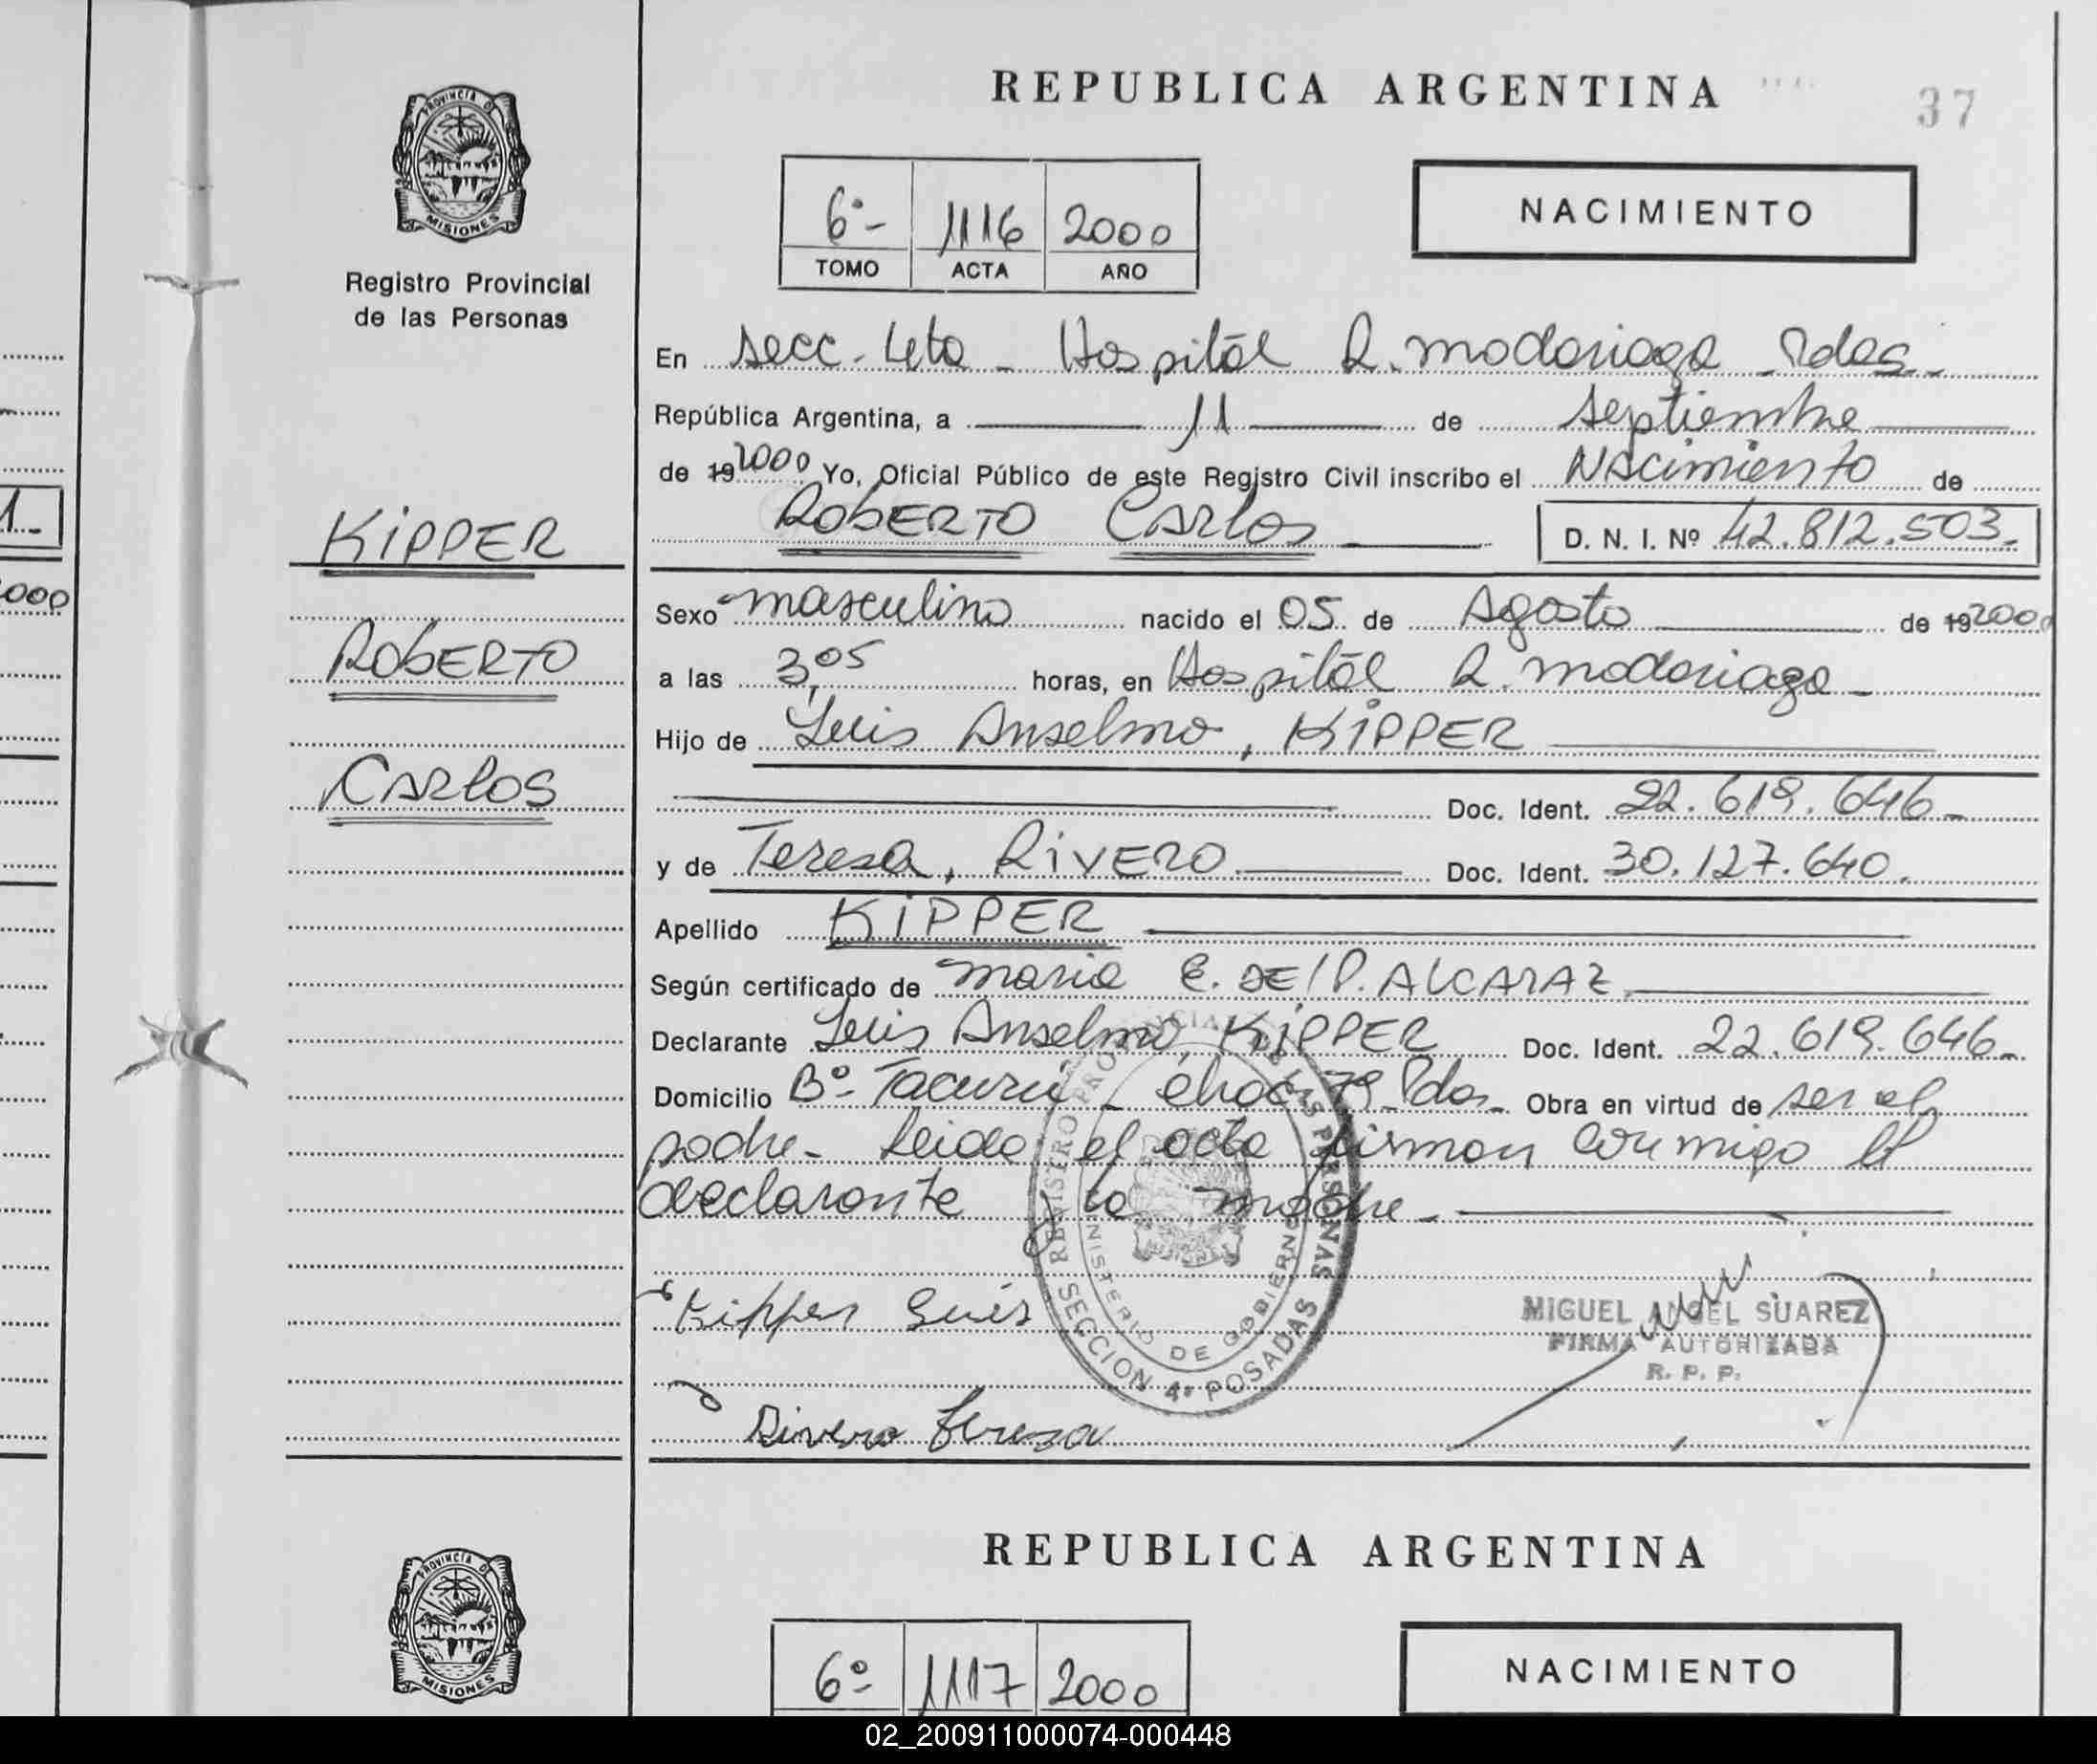 REPUBLICA ARGENTINA
37
PROVINCIA DE
MISIONES
Registro Provincial
de las Personas
6º- 1116 2000
TOMO ACTA AÑO
NACIMIENTO
En secc. 4ta - Hospital R. Madariaga - Pdas.-
República Argentina, a 11 de Septiembre
de 19 2000 Yo, Oficial Público de este Registro Civil inscribo el Nacimiento de
Roberto Carlos D. N. I. Nº 42.812.503.-
KIPPER
ROBERTO
CARLOS
1.-
2000
Sexo masculino nacido el 05 de Agosto de 19 2000
a las 3,05 horas, en Hospital R. Madariaga -
Hijo de Luis Anselmo, KIPPER
Doc. Ident. 22.619.646-
y de Teresa, RIVERO Doc. Ident. 30.127.640.
Apellido KIPPER
Según certificado de Maria E. DE P. ALCARAZ
Declarante Luis Anselmo, KIPPER Doc. Ident. 22.619.646-
Domicilio Bº- Tacurú - 79 Pdas- Obra en virtud de ser el
padre- Leida el acta firman conmigo el
declarante y la madre-
REGISTRO PROVINCIAL DE LAS PERSONAS
MINISTERIO DE GOBIERNO
SECCION 4ª POSADAS
Kipper Luis
MIGUEL ANGEL SUAREZ
FIRMA AUTORIZADA
R. P. P.
Rivero Teresa
REPUBLICA ARGENTINA
PROVINCIA DE
MISIONES
6º- 1117 2000
NACIMIENTO
02_200911000074-000448